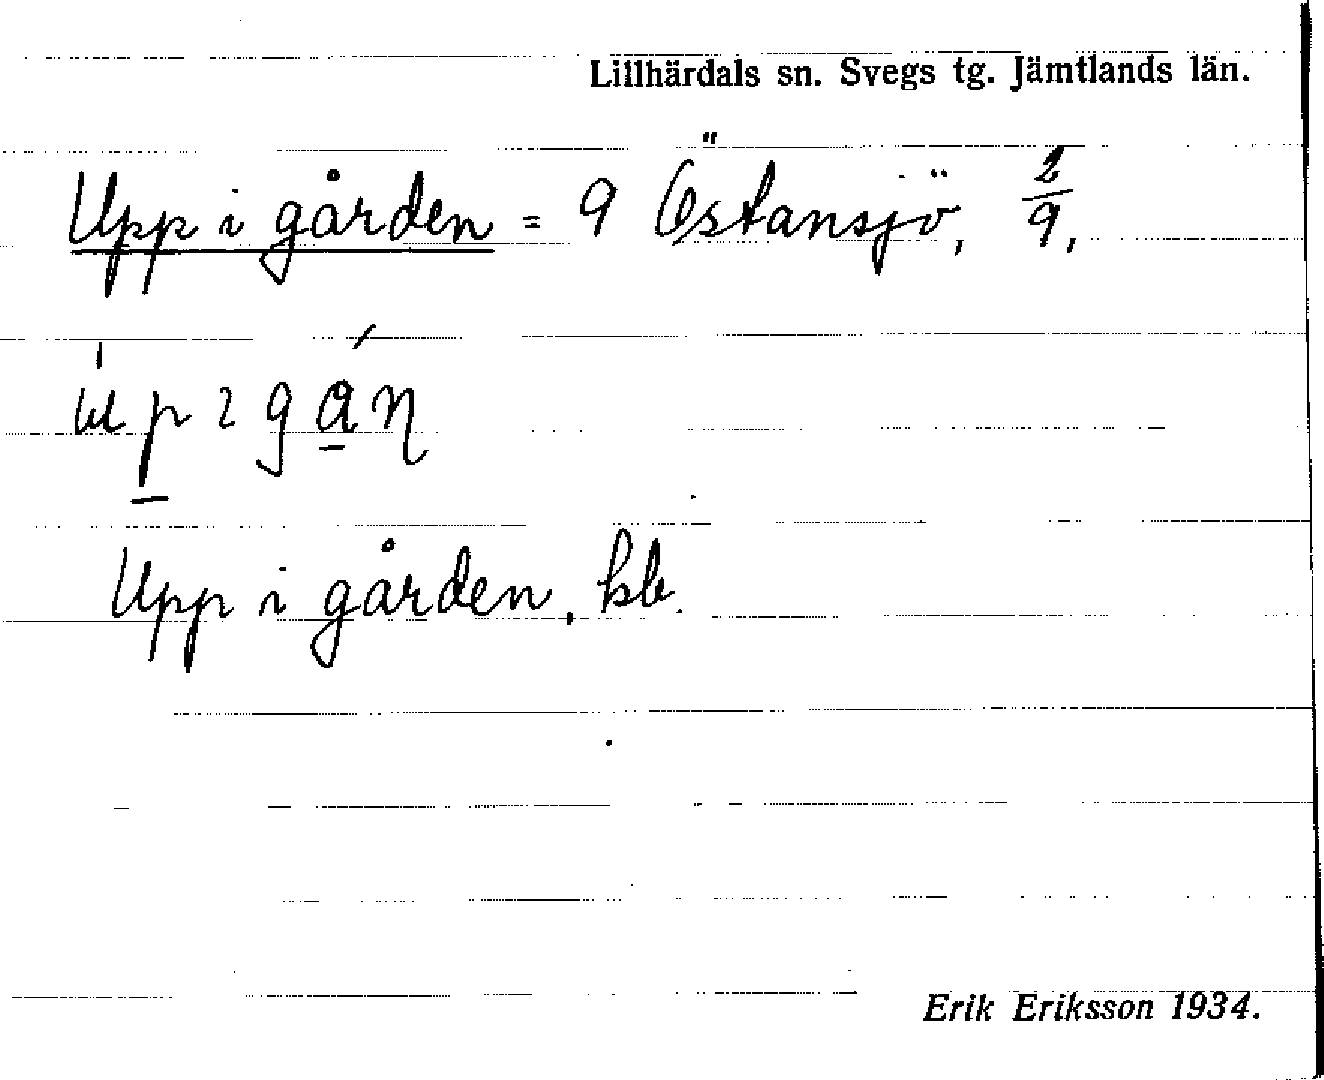 Lillhärdals sn. Svegs tg. Jämtlands län.
Upp i gården = 9 Östansjö, 2/9,
Upp i gården, kb.
Erik Eriksson 1934.